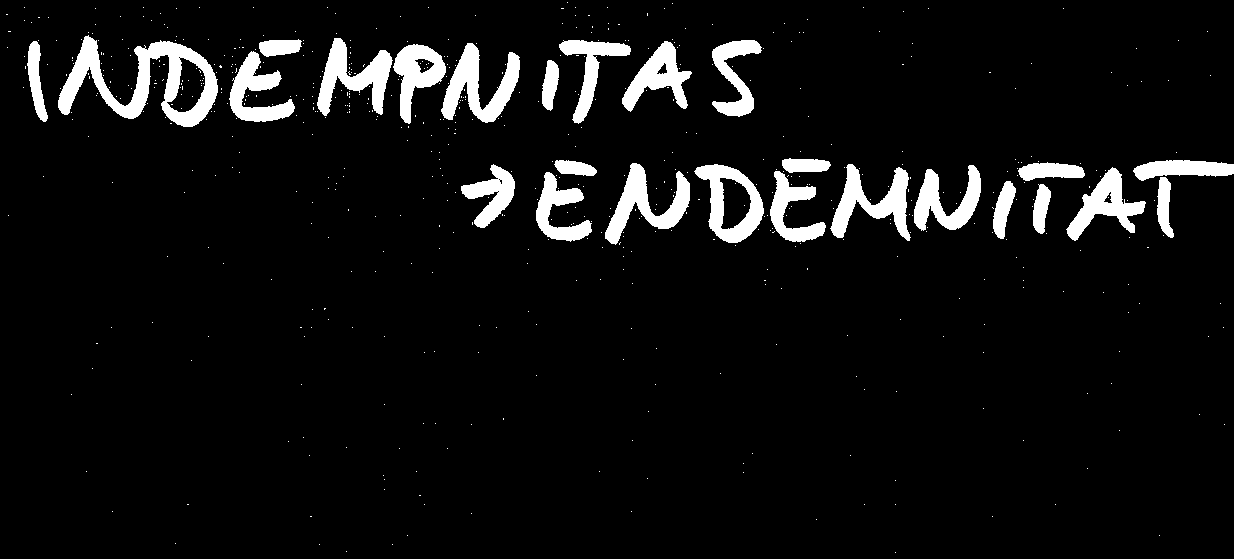 INDEMPNITAS
→ENDEMNITAT